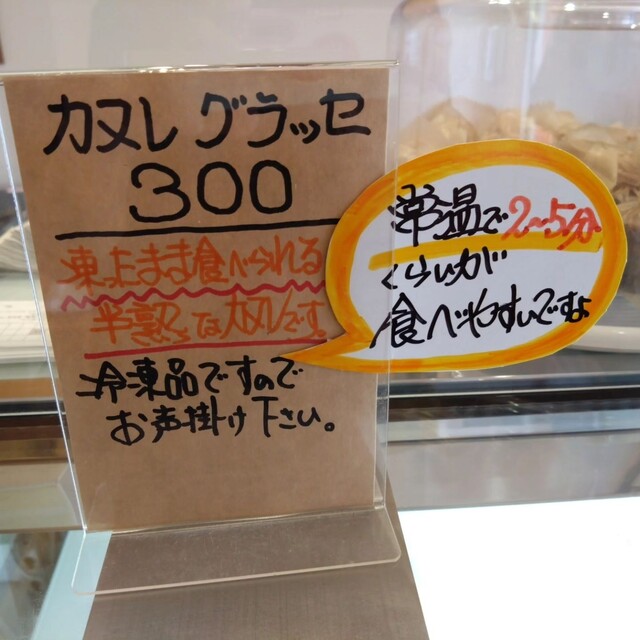 カヌレ グラッセ
300
凍ったまま食べられる
半熟っなカヌレです。
冷凍品ですので
お声掛け下さい。
常温で2~5分
くらいが
食べやすいですよ